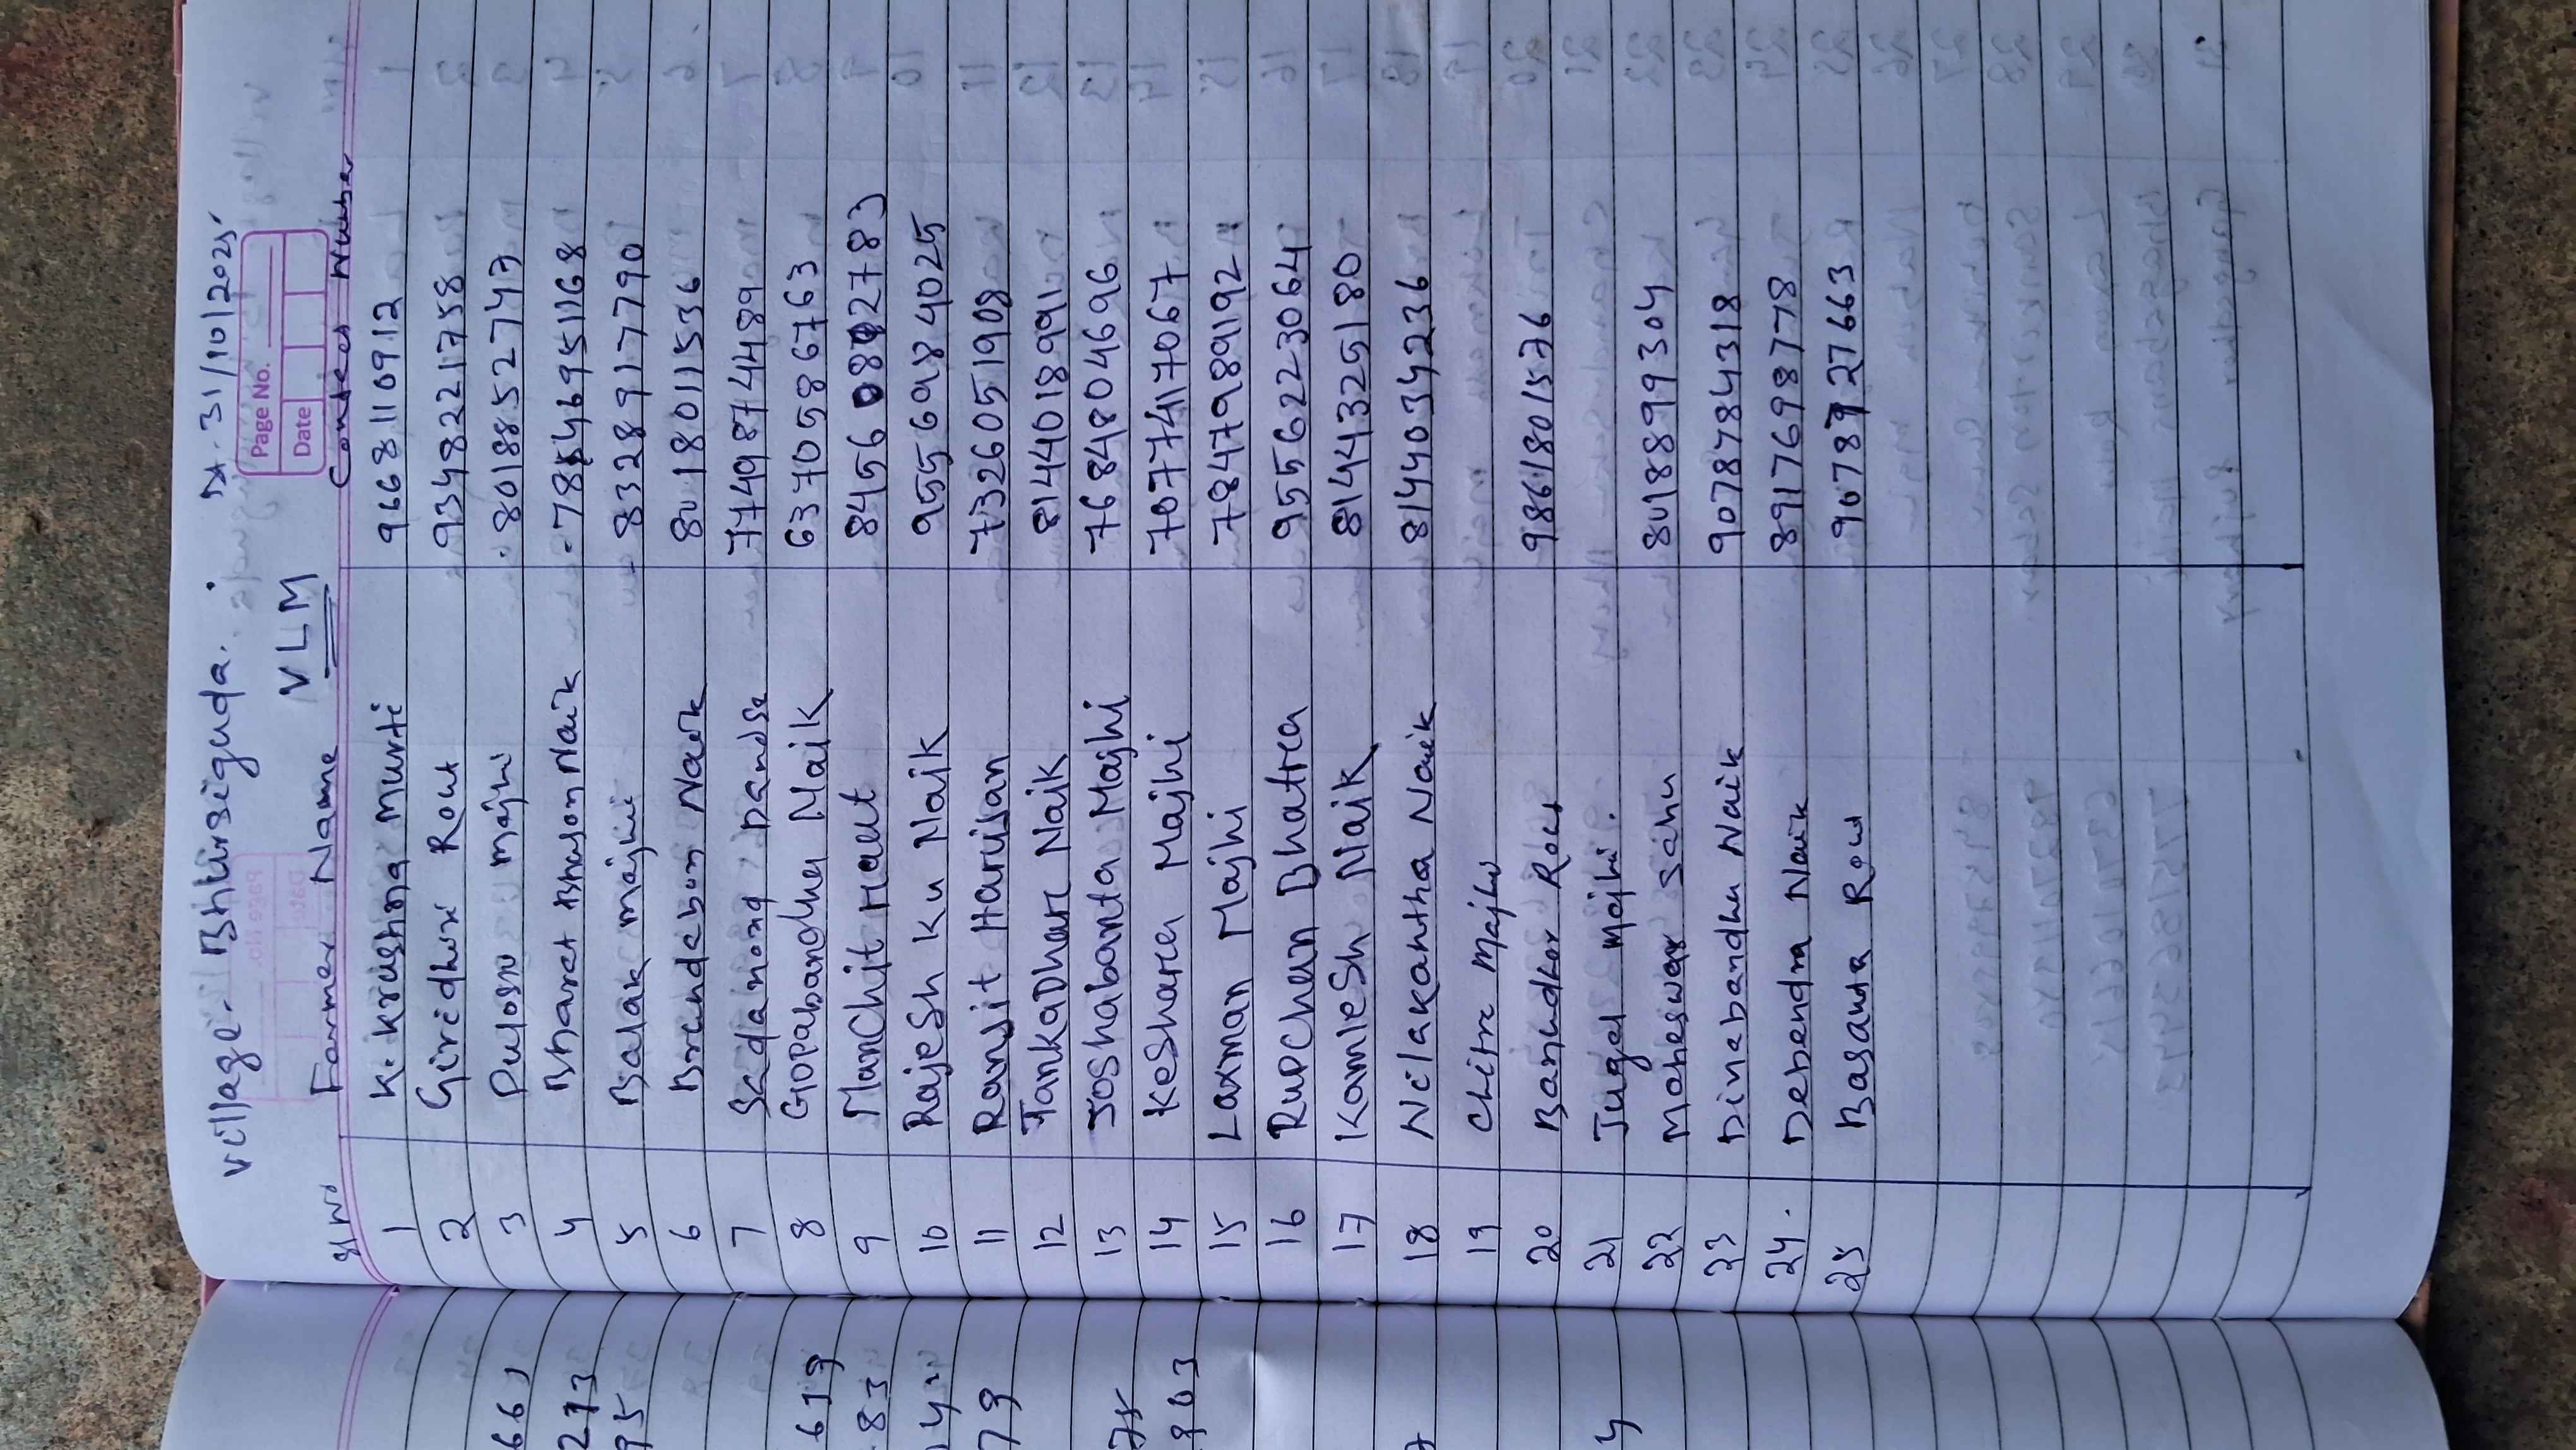 Village - Bhursiguda. Dt. 31/10/2025
Page No.
Date
VLM
Sl No Farmer Name Contact Number
1 K. Krushna Murti 9668110912
2 Giridhari Rout 9348221758
3 Pulosn Majhi 8018852747
4 Bharat Bhuson Naik
5 Balak Majhi 8328917790
6 Brundabon Naik 8018011536
7 Sadanond Dandse 7749874489
8 Gopabandhu Naik 6370586763
9 Manchit Haut
10 Rajesh Ku Naik 9556984025
11 Ranjit Harijan 7326051908
12 TankaDhar Naik 8144018991
13 Joshabanta Majhi 7684804696
14 Keshara Majhi 7077417067
15 Laxman Majhi 7847989192
16 Rupchan Bhatra 9556223064
17 Kamlesh Naik 8144325180
18 Nilakantha Naik 8144034236
19 Chitra Majhi
20 Banundhar Rout 9861801576
21 Jugal Majhi.
22 Maheswar Sahu 8018899304
23 Dinabandhu Naik 9078784318
24. Debendra Naik 8917698778
25 Basanta Rout
661
213
95
619
83
79
78
903